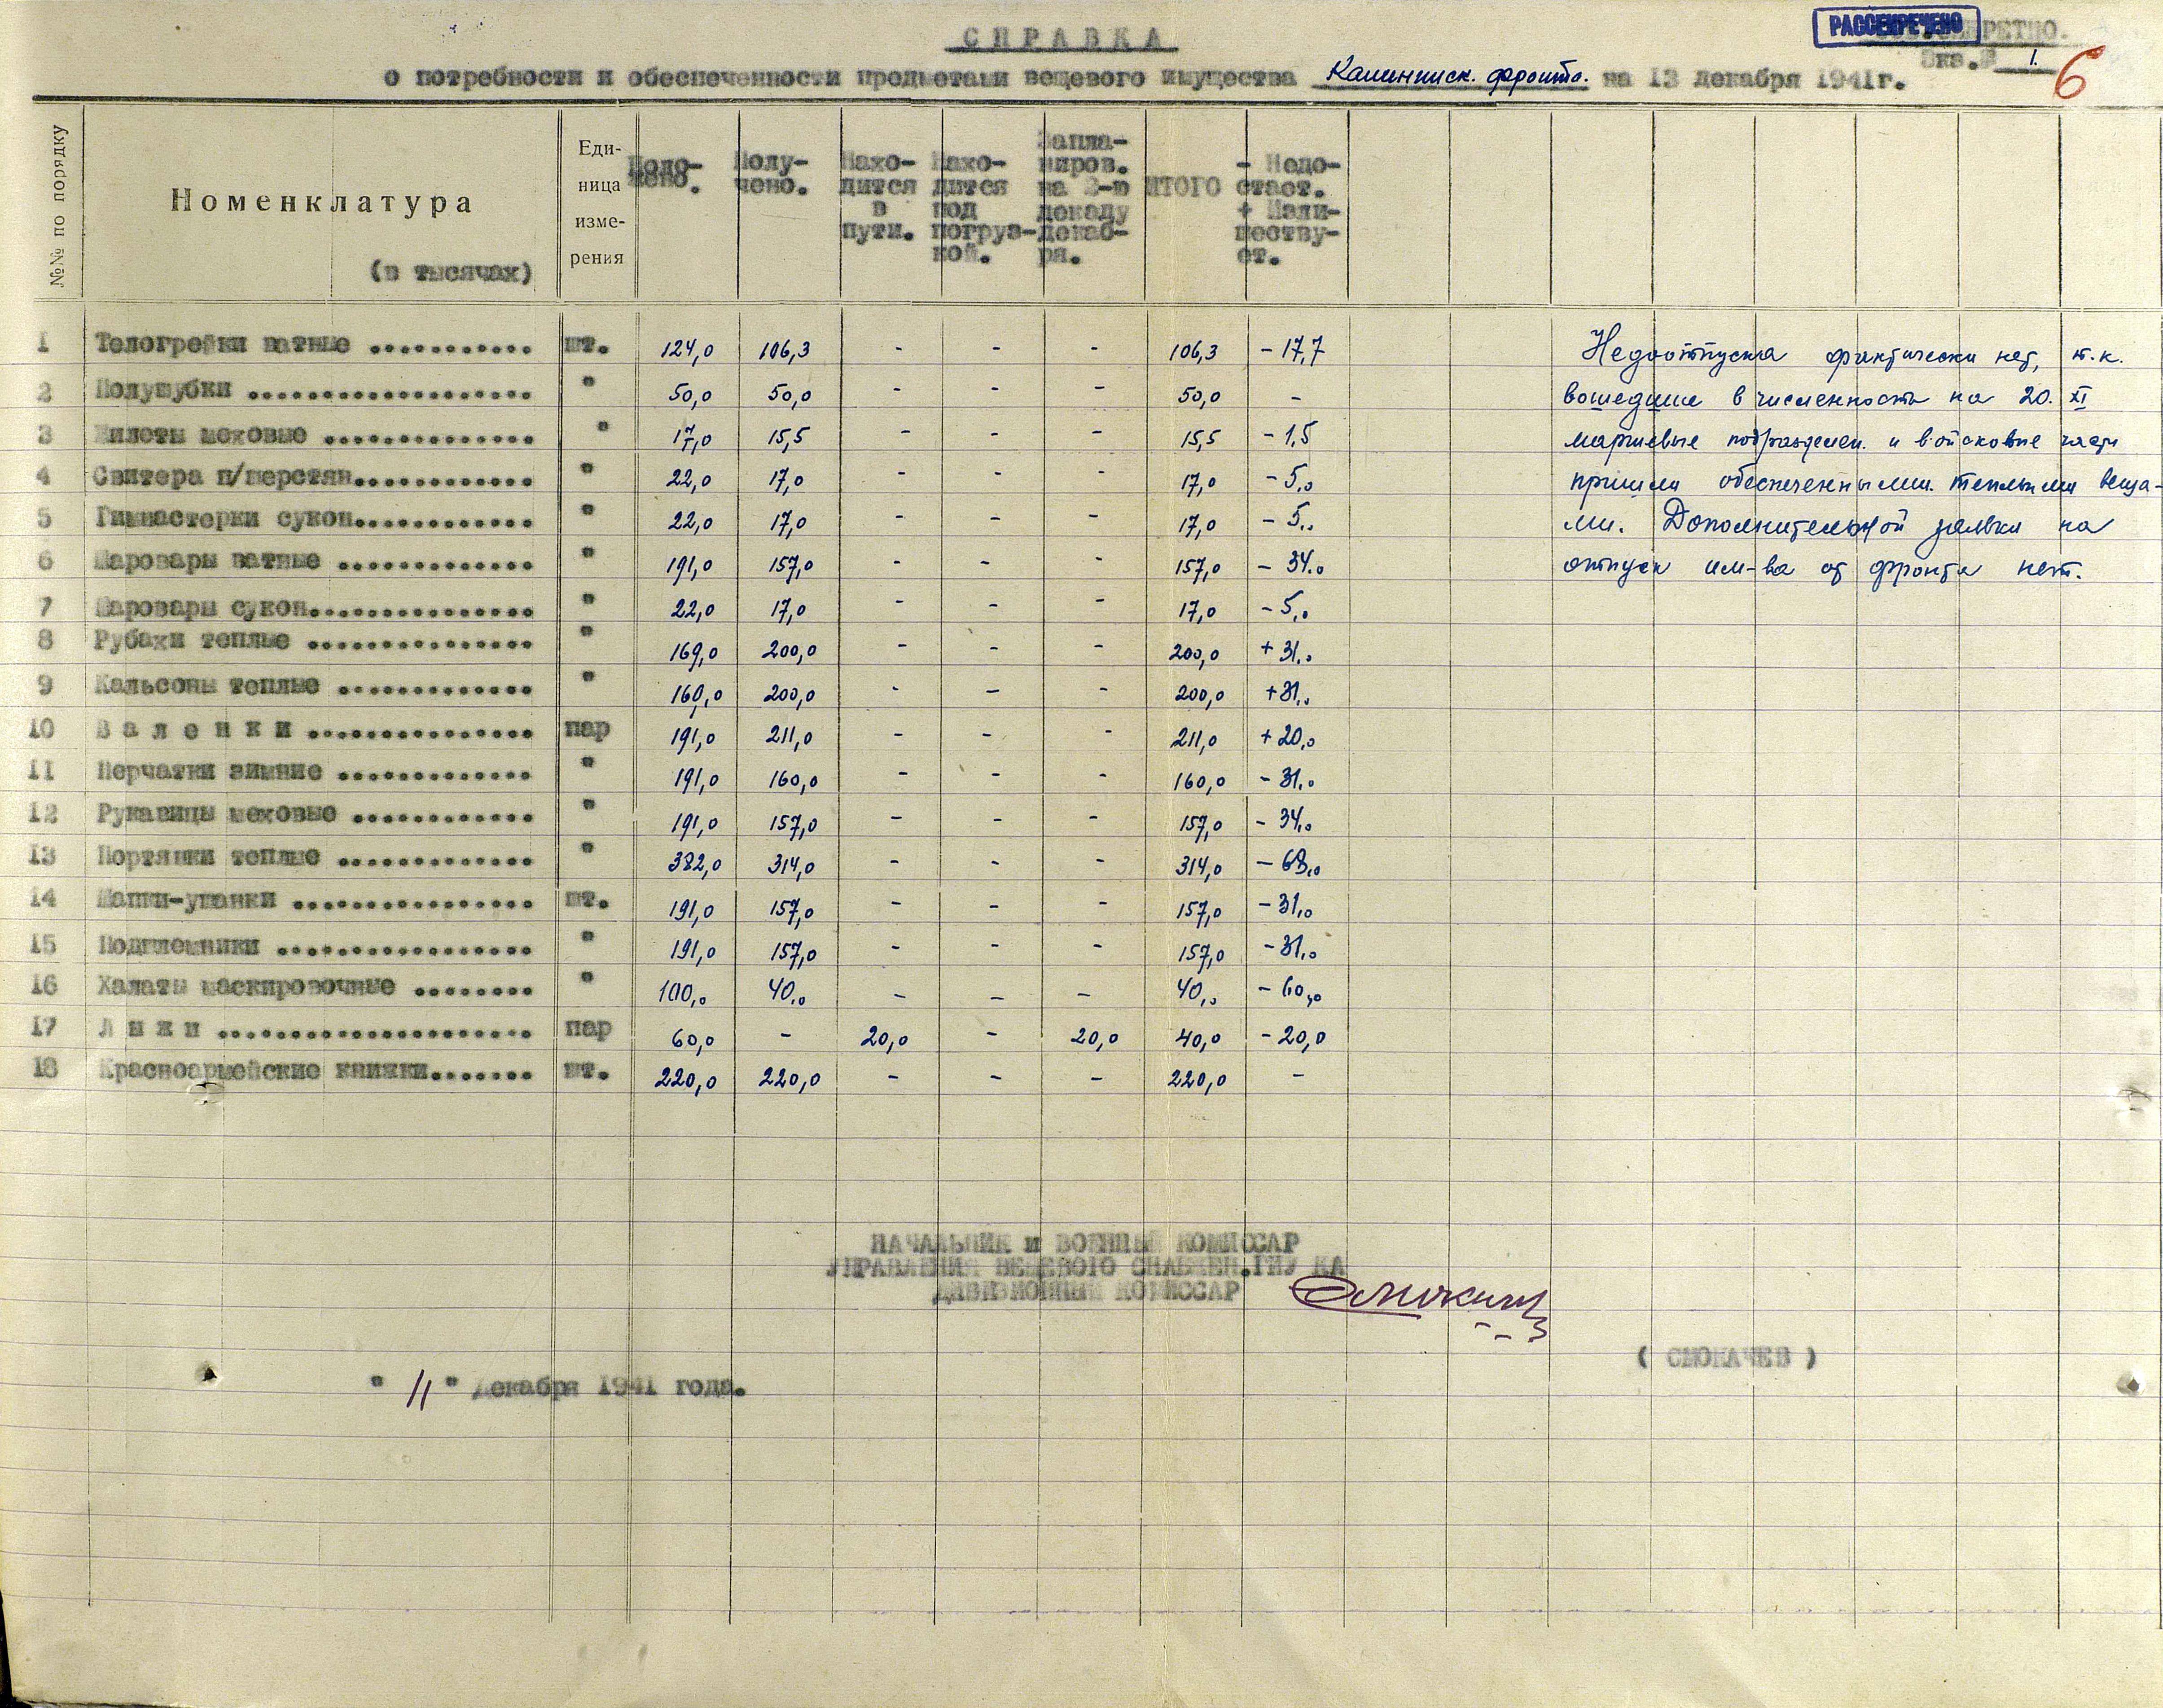 СПРАВКА
РАССЕКРЕЧЕНО
Экз.№ 1.
6
о потребности и обеспеченности предметами вещевого имущества Калининск. фронта. на 13 декабря 1941г.
№№ по порядку
Номенклатура
(в тысячах)
Еди-
ница
изме-
рения
Полу-
чено.
Нахо-
дится
в
пути.
Нахо-
дится
под
погруз-
кой.
Запла-
ниров.
на 2-ю
декаду
декаб-
ря.
ИТОГО
- Недо-
стает.
+ Изли-
шеству-
ет.
1 Телогрейки ватные ........... шт. 124,0 106,3 - - - 106,3 - 17,7
2 Полушубки ................... " 50,0 50,0 - - - 50,0 -
3 Жилеты меховые .............. " 17,0 15,5 - - - 15,5 - 1,5
4 Свитера п/шерстян............ " 22,0 17,0 - - - 17,0 - 5,0
5 Гимнастерки сукон............ " 22,0 17,0 - - - 17,0 - 5,0
6 Шаровары ватные ............. " 191,0 157,0 - - - 157,0 - 34,0
7 Шаровары сукон............... " 22,0 17,0 - - - 17,0 - 5,0
8 Рубахи теплые ............... " 169,0 200,0 - - - 200,0 + 31,0
9 Кальсоны теплые ............. " 169,0 200,0 - - - 200,0 +31,0
10 Валенки ............... пар 191,0 211,0 - - - 211,0 + 20,0
11 Перчатки зимние ............. " 191,0 160,0 - - - 160,0 - 31,0
12 Рукавицы меховые ............ " 191,0 157,0 - - - 157,0 - 34,0
13 Портянки теплые ............. " 382,0 314,0 - - - 314,0 - 68,0
14 Шапки-ушанки ................ шт. 191,0 157,0 - - - 157,0 - 31,0
15 Подшлемники ................. " 191,0 157,0 - - - 157,0 - 31,0
16 Халаты маскировочные ........ " 100,0 40,0 - - - 40,0 - 60,0
17 Лыжи ..................... пар 60,0 - 20,0 - 20,0 40,0 - 20,0
18 Красноармейские книжки....... шт. 220,0 220,0 - - - 220,0 -
Недоотпуска фактически нет, т.к.
вошедшие в численность на 20. XI
маршевые подразделен. и войсковые части
пришли обеспеченными теплыми веща-
ми. Дополнительной заявки на
отпуск им-ва от фронта нет.
НАЧАЛЬНИК и ВОЕННЫЙ КОМИССАР
УПРАВЛЕНИЯ ВЕЩЕВОГО СНАБЖЕН.ГИУ КА
ДИВИЗИОННЫЙ КОМИССАР
( СМОКАЧЕВ )
" 11 " декабря 1941 года.